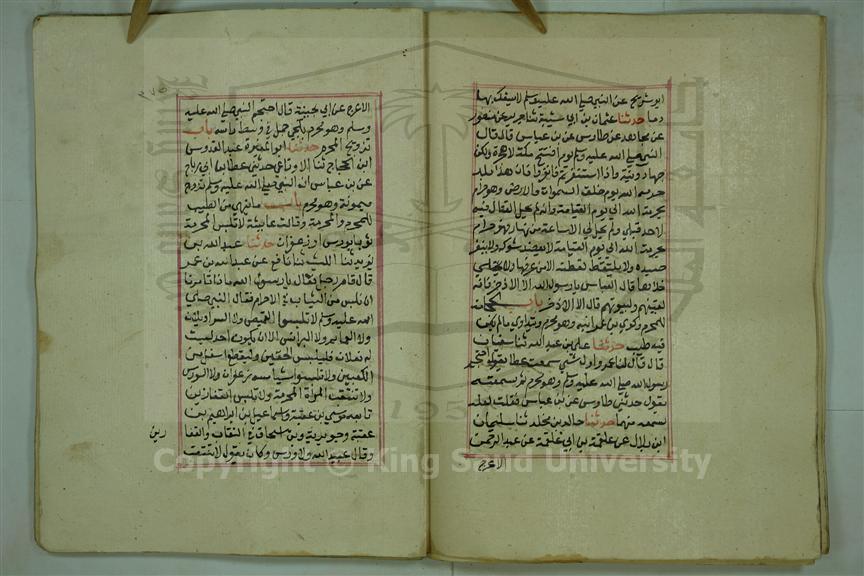 ابو شريح عن النبي صلى الله عليه وسلم لا يسفك بها
دما حدثنا عثمان بن ابي شيبة ثنا جرير عن منصور
عن مجاهد عن طاوس عن بن عباس قال قال
النبي صلى الله عليه وسلم يوم افتتح مكة لا هجرة ولكن
جهاد ونية واذا استنفرتم فانفروا فان هذا بلد
حرمه الله يوم خلق السموات والارض وهو حرام
بحرمة الله الى يوم القيامة وانه لم يحل القتال فيه
لاحد قبلي ولم يحل لي الا ساعة من نهار فهو حرام
بحرمة الله الى يوم القيامة لا يعضد شوكه ولا ينفر
صيده ولا يلتقط لقطته الا من عرفها ولا يختلى
خلاها قال العباس يا رسول الله الا الاذخر فانه
لقينهم ولبيوتهم قال الا الاذخر باب الحجامة
للمحرم وكوى بن عمر ابنه وهو محرم ويتداوى ما لم يكن
فيه طيب حدثنا علي بن عبد الله ثنا سفيان
قال قال لنا عمرو اول شي سمعت عطا يقول احتجم
رسول الله صلى الله عليه وسلم وهو محرم ثم سمعته
يقول حدثني طاوس عن بن عباس فقلت لعله
سمعه منهما حدثنا خالد بن مخلد ثنا سليمان
ابن بلال عن علقمة بن ابي علقمة عن عبد الرحمن
الاعرج
الاعرج عن ابن بحينة قال احتجم النبي صلى الله عليه
وسلم وهو محرم بلحي جمل في وسط راسه باب
تزويج المحرم حدثنا ابو المغيرة عبد القدوس
ابن الحجاج ثنا الاوزاعي حدثني عطا بن ابي رباح
عن بن عباس ان النبي صلى الله عليه وسلم تزوج
ميمونة وهو محرم باب ما ينهى من الطيب
للمحرم والمحرمة وقالت عائشة لا تلبس المحرمة
ثوبا بورس او زعفران حدثنا عبد الله بن
يزيد ثنا الليث ثنا نافع عن عبد الله بن عمر
قال قام رجل فقال يا رسول الله ماذا تامرنا
ان نلبس من الثياب في الاحرام فقال النبي صلى
الله عليه وسلم لا تلبسوا القميص ولا السراويلات
ولا العمائم ولا البرانس الا ان يكون احد ليست
له نعلان فليلبس الخفين وليقطع اسفل من
الكعبين ولا تلبسوا شيا مسه زعفران ولا الورس
ولا تنتقب المراة المحرمة ولا تلبس القفازين
تابعه موسى بن عقبة واسماعيل بن ابراهيم بن
عقبة وجويرية وبن اسحاق في النقاب والقفا
زين
وقال عبيد الله ولا ورس وكان يقول لا تنتقب
Copyright © King Saud University
195